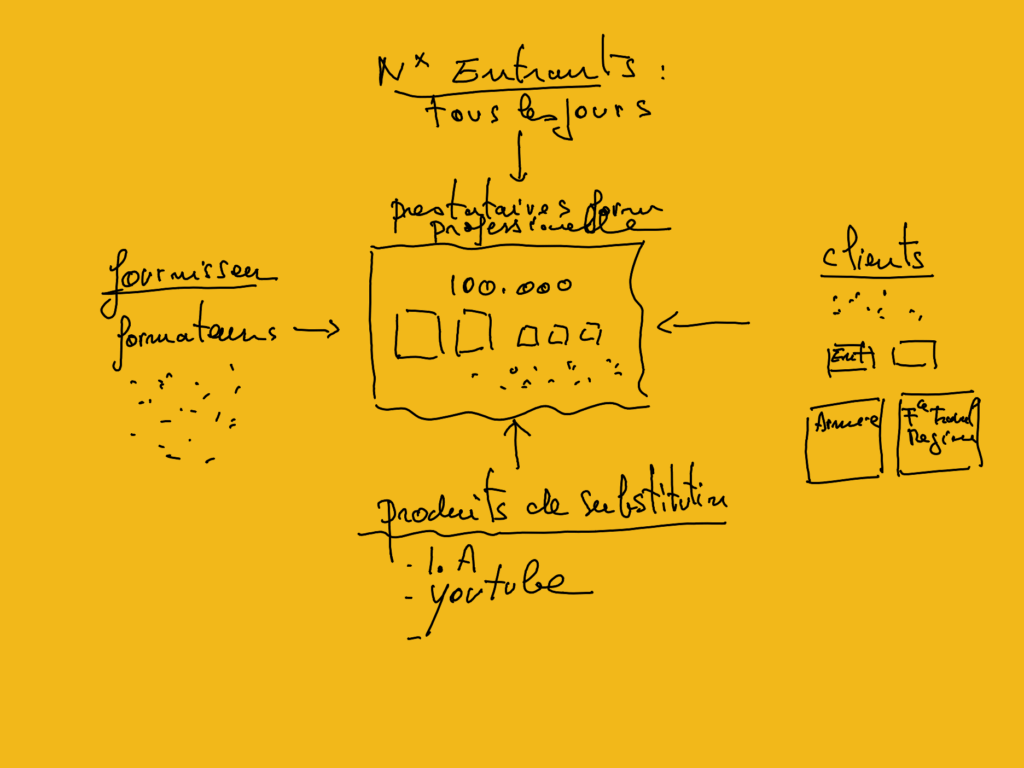 Nx Entrants :
tous les jours
prestataires form
professionnelle
100.000
fournisseur
formateurs
clients
Ent
Armée
Fce Travail
Region
produits de substitution
- I. A
- youtube
-